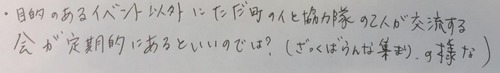 ・目的のあるイベント以外にただ町の人と協力隊の2人が交流する
会が定期的にあるといいのでは？（ざっくばらんな集まり。の様な）